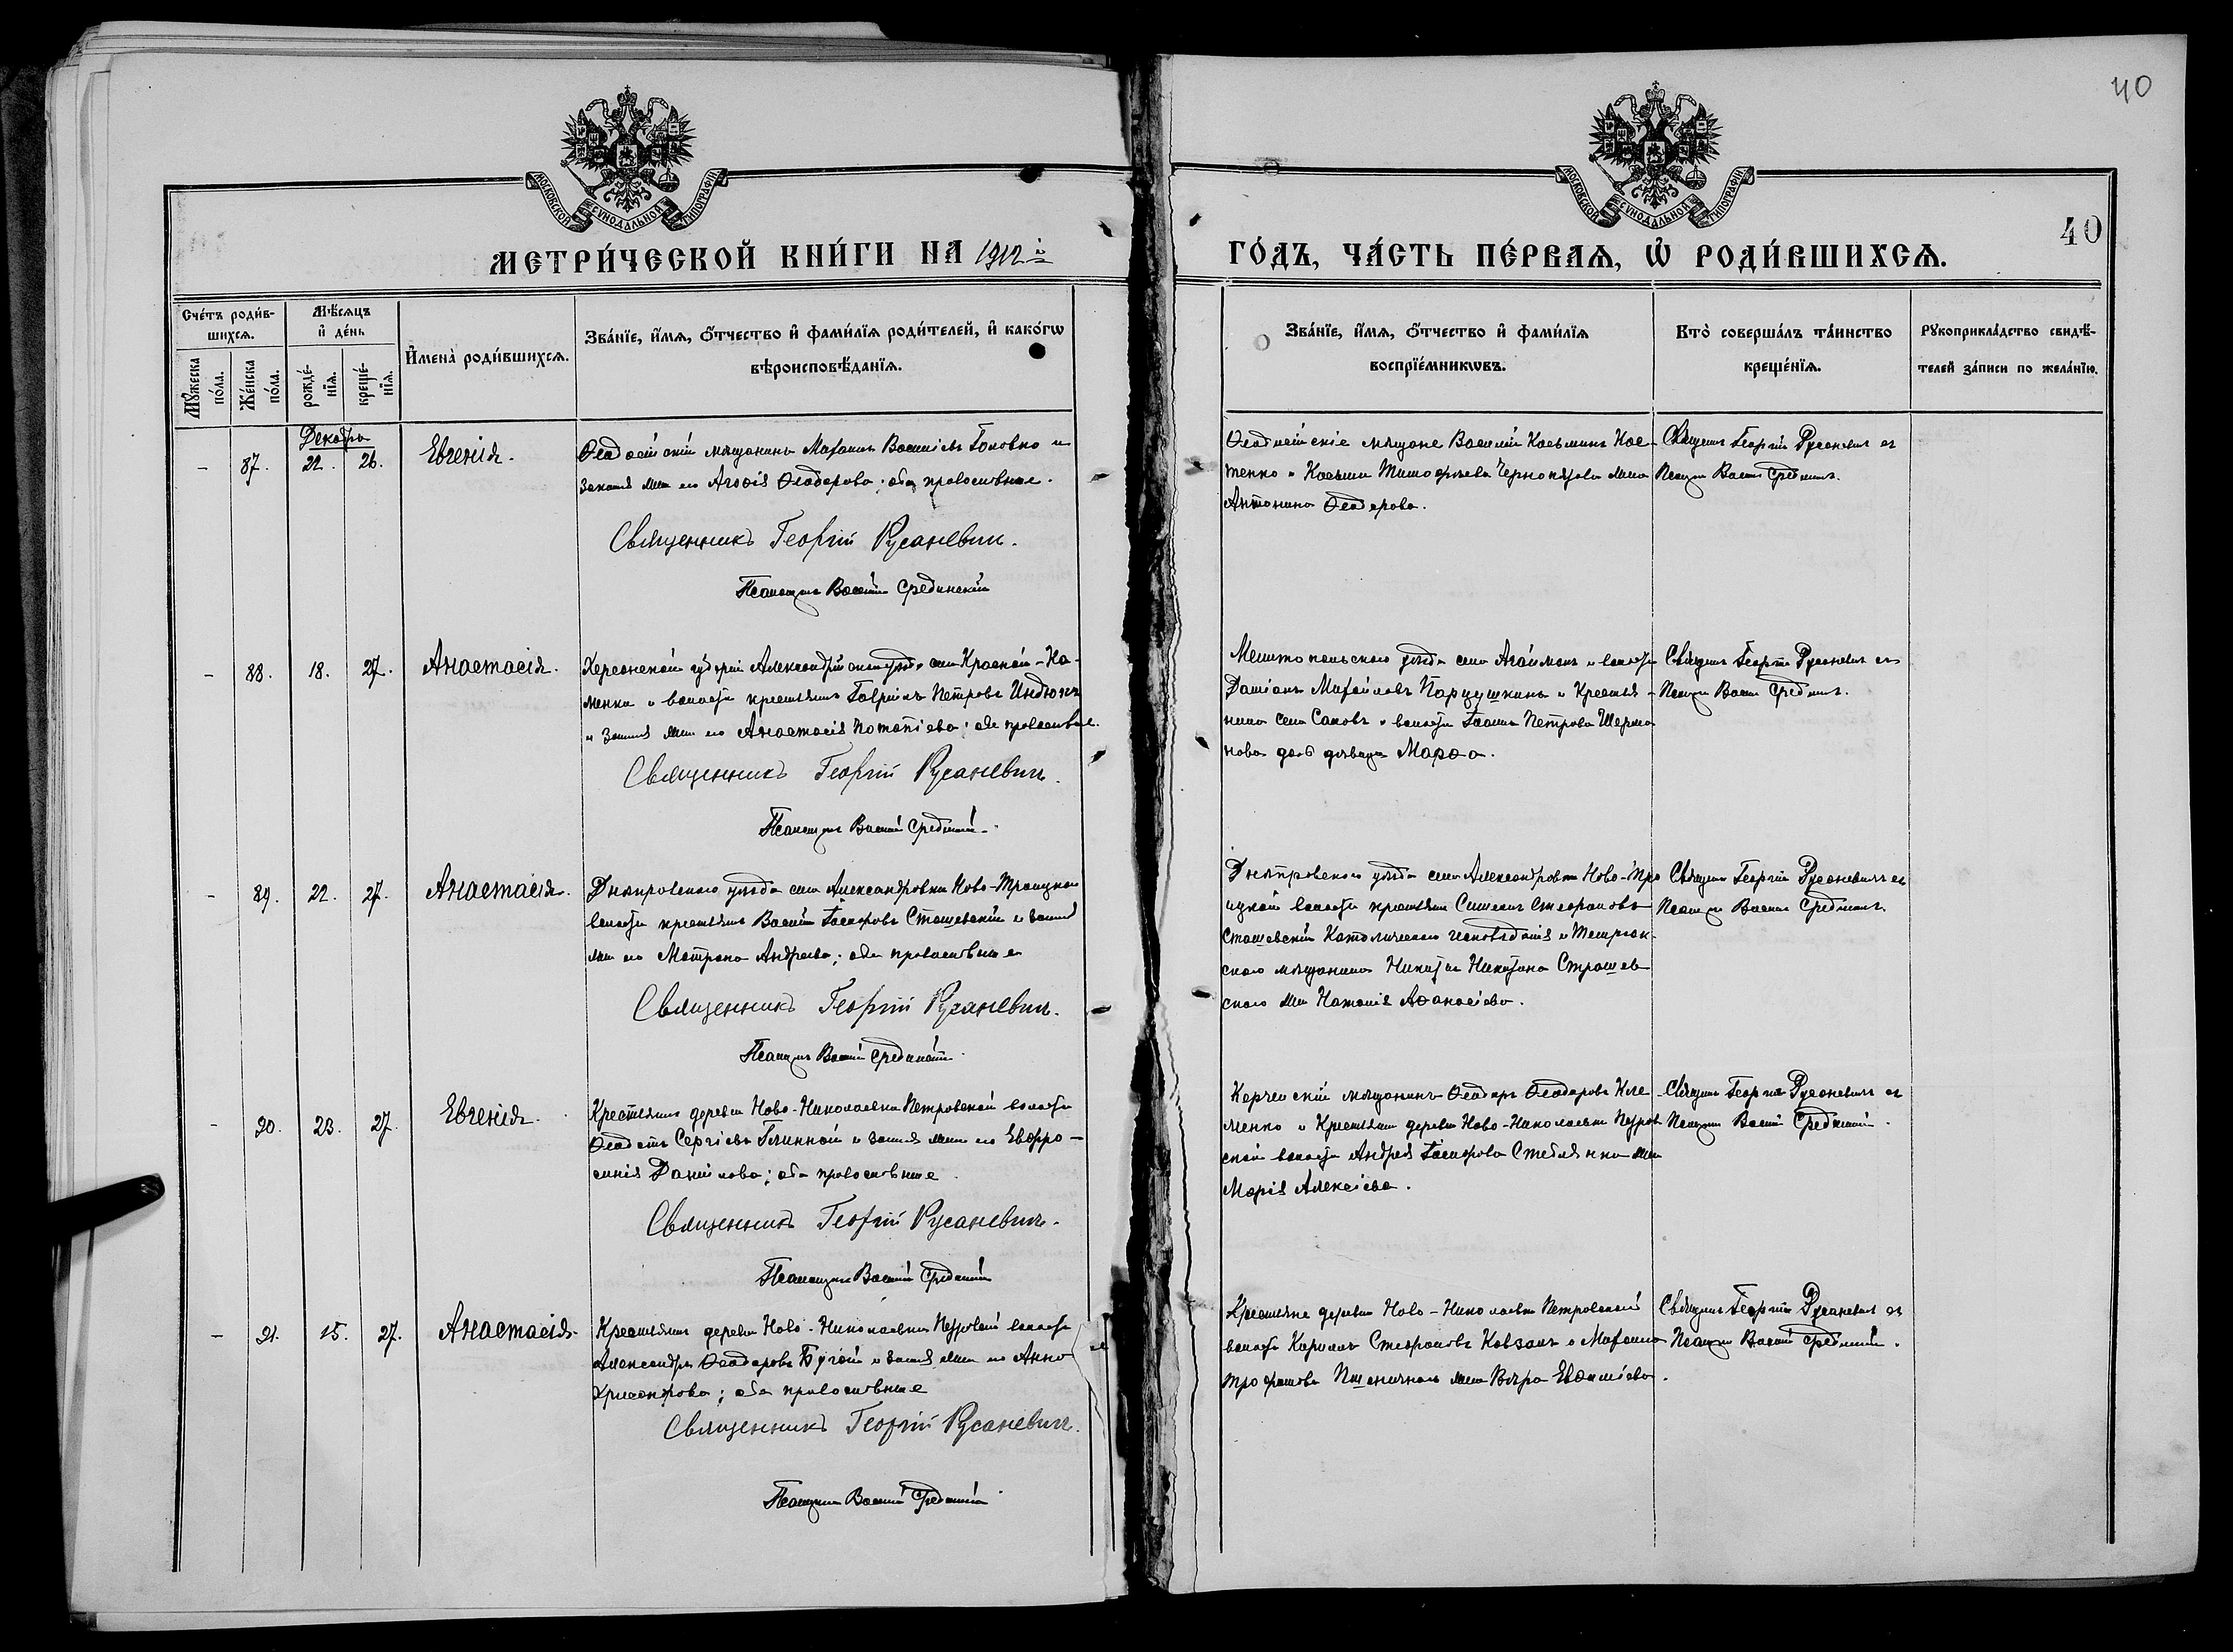 40
МОСКОВСКОЙ СѴНОДАЛЬНОЙ ТИПОГРАФІИ
МОСКОВСКОЙ СѴНОДАЛЬНОЙ ТИПОГРАФІИ
40
МЕТРИ́ЧЕСКОЙ КНИ́ГИ НА 1912 й
ГО́ДЪ, ЧА́СТЬ ПЕ́РВАѦ, Ѡ РОДИ́ВШИХСѦ.
Сче́тъ роди́в-
шихсѧ.
Мѣ́сѧцъ
и҆ де́нь
Мꙋжеска
по́ла.
Же́нска
по́ла.
рожде́-
нїѧ.
креще́-
нїѧ.
И҆мена̀ роди́вшихсѧ.
Зва́нїе, и҆́мѧ, ѻ҆́тчество и҆ фами́лїѧ роди́телей, и҆ како́гѡ
вѣроисповѣ́данїѧ.
Зва́нїе, и҆́мѧ, ѻ҆́тчество и҆ фами́лїѧ
воспрїе́мникѡвъ.
Кто̀ соверша́лъ та́инство
креще́нїѧ.
Рꙋкоприкла́дство свидѣ́-
телей за́писи по жела́нїю.
Декабрь
- 87. 22. 26. Евгенія.
Ѳеодосійскій мѣщанинъ Василіевъ Головко и
законная жена его Агаѳія Ѳеодорова; оба православные.
Священникъ Георгій Русаневич.
Псаломщикъ Василій Срединскій
Ѳеодосійскіе мѣщане Василій Косьминъ Кос-
тенко и Косьмы Тимофѣева жена
Антонина Ѳеодорова.
Священникъ Георгій Русаневич съ
Псаломщ. Васил. Срединск.
- 88. 18. 27. Анастасія.
Херсонской губерніи Александрійскаго уѣзда села Красной-Ка-
менки и волости крестьянинъ Гавріилъ Петровъ Индюкъ
и законная жена его Анастасія Потапіева; оба православные.
Священникъ Георгій Русаневич.
Псаломщикъ Василій Срединскій
Мелитопольскаго уѣзда села Агайманъ и волости
Даміанъ Михайловъ и Крестья-
нина села и волости Іоанна Петрова Шерма-
нова дочь дѣвица Марѳа.
Священникъ Георгій Русаневич съ
Псаломщ. Васил. Срединск.
- 89. 22. 27. Анастасія.
Днѣпровскаго уѣзда села Александровки Ново-Троицкой
волости крестьянинъ Василій Сташевскій и законная
жена его Матрона Андреева; оба православные
Священникъ Георгій Русаневич.
Псаломщикъ Василій Срединскій
Днѣпровскаго уѣзда села Александровки Ново-Тро-
ицкой волости крестьянинъ Стефановъ
Сташевскій Католическаго исповѣданія и Темрюк-
скаго мѣщанина Никиты Никитина
скаго жена Наталія Аѳанасіева.
Священникъ Георгій Русаневичъ съ
Псаломщ. Васил. Срединск.
- 90. 23. 27. Евгенія.
Крестьянинъ деревни Ново-Николаевки Петровской волости
Ѳеодотъ Сергіевъ Глинной и законная жена его Евфро-
синія Данилова; оба православные
Священникъ Георгій Русаневич.
Псаломщикъ Василій Срединскій
Керченскій мѣщанинъ Ѳеодоръ Ѳеодоровъ Кле-
менко и Крестьянина деревни Ново-Николаевки Петров-
ской волости Андрея жена
Марія Алексіева.
Священникъ Георгій Русаневич съ
Псаломщ. Василій Срединскій.
- 91. 15. 27. Анастасія.
Крестьянинъ деревни Ново-Николаевки Петровской волости
Александръ Ѳеодоровъ Бугай и законная жена его Анна
Хрисанфова; оба православные
Священникъ Георгій Русаневич.
Псаломщикъ Василій Срединскій
Крестьяне деревни Ново-Николаевки Петровской
волости Кириллъ Стефановъ и Михаила
Трофимова жена Вѣра Евѳиміева.
Священникъ Георгій Русаневич съ
Псаломщ. Василій Срединскій.